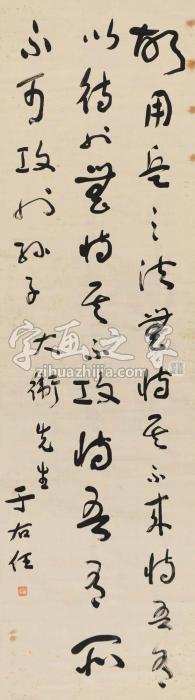 故用兵之法無恃其不來恃吾有
以待也無恃其不攻恃吾有所
不可攻也孫子 大衛先生 于右任
字画之家
www.zihuazhijia.com